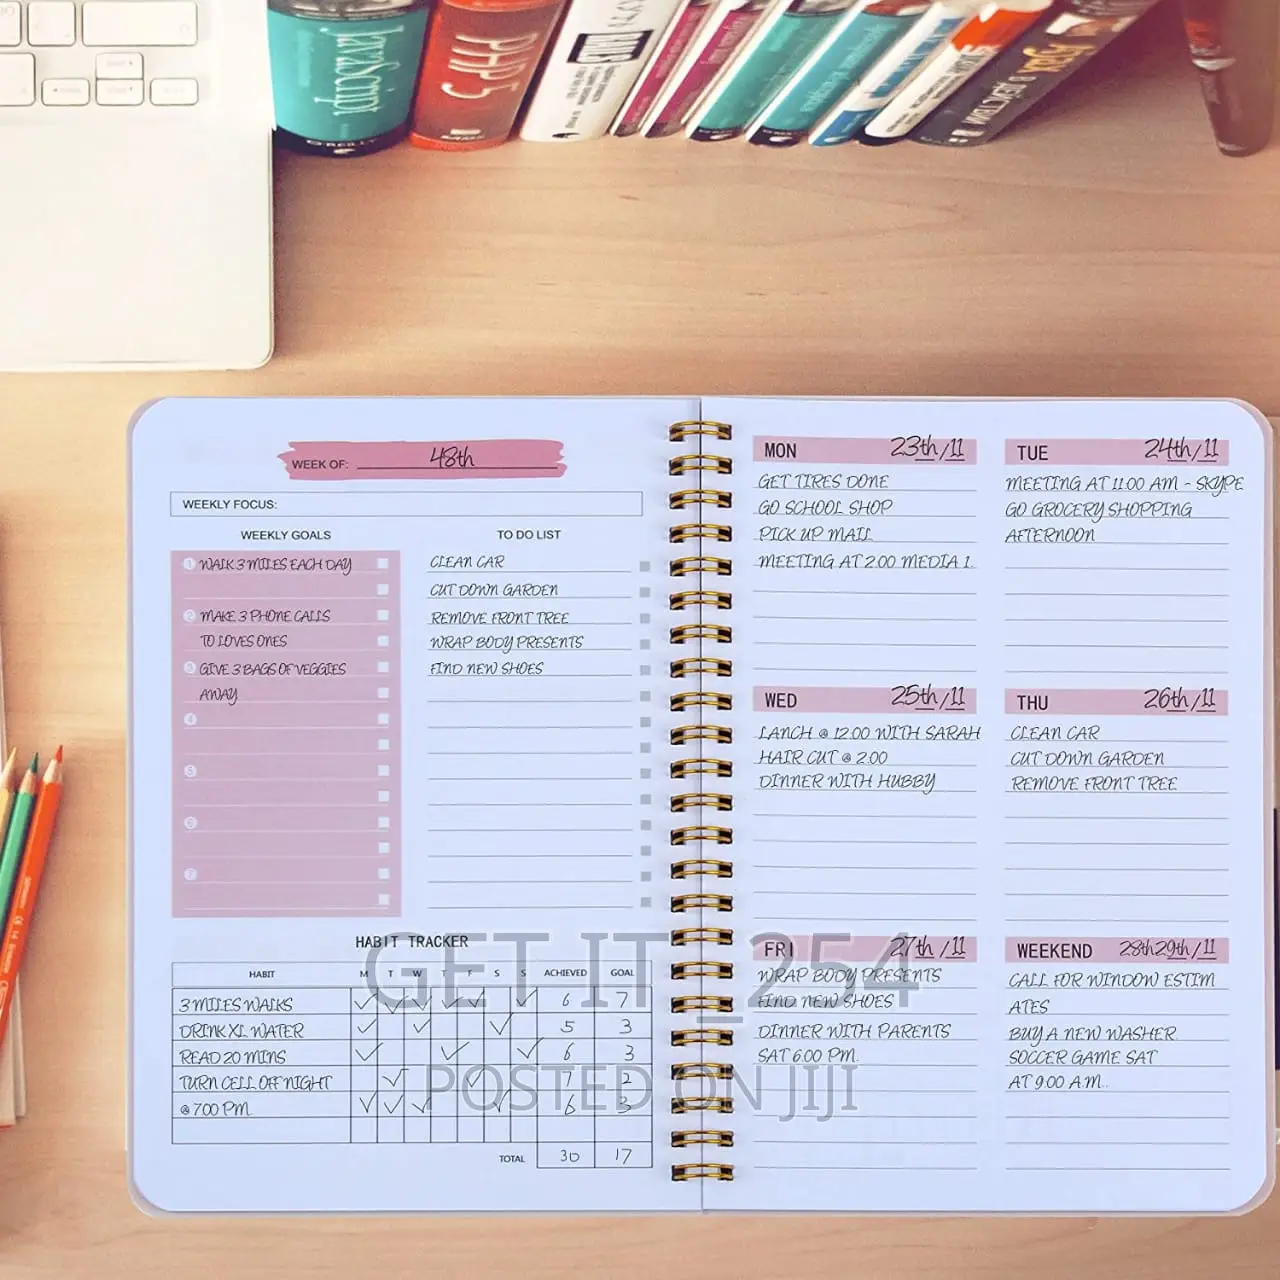 Javascript
PHP5
O'REILLY
WEEK OF: 48th
WEEKLY FOCUS:
WEEKLY GOALS
1 WALK 3 MILES EACH DAY
2 MAKE 3 PHONE CALLS
TO LOVES ONES
3 GIVE 3 BAGS OF VEGGIES
AWAY
4
5
6
7
TO DO LIST
CLEAN CAR
CUT DOWN GARDEN
REMOVE FRONT TREE
WRAP BODY PRESENTS
FIND NEW SHOES
HABIT TRACKER
HABIT M T W T F S S ACHIEVED GOAL
3 MILES WALKS 6 7
DRINK XL WATER 5 3
READ 20 MINS 6 3
TURN CELL OFF NIGHT 7 2
@ 7.00 PM. 6 3
TOTAL 30 17
MON 23th/11
GET TIRES DONE
GO SCHOOL SHOP
PICK UP MAIL
MEETING AT 2.00 MEDIA 1.
TUE 24th/11
MEETING AT 11.00 AM - SKYPE
GO GROCERY SHOPPING
AFTERNOON
WED 25th/11
LANCH @ 12:00 WITH SARAH
HAIR CUT @ 2:00
DINNER WITH HUBBY
THU 26th/11
CLEAN CAR
CUT DOWN GARDEN
REMOVE FRONT TREE
FRI 27th/11
WRAP BODY PRESENTS
FIND NEW SHOES
DINNER WITH PARENTS
SAT 6.00 PM.
WEEKEND 28th29th/11
CALL FOR WINDOW ESTIM
ATES
BUY A NEW WASHER.
SOCCER GAME SAT
AT 9.00 A.M..
GET IT_254
POSTED ON JIJI